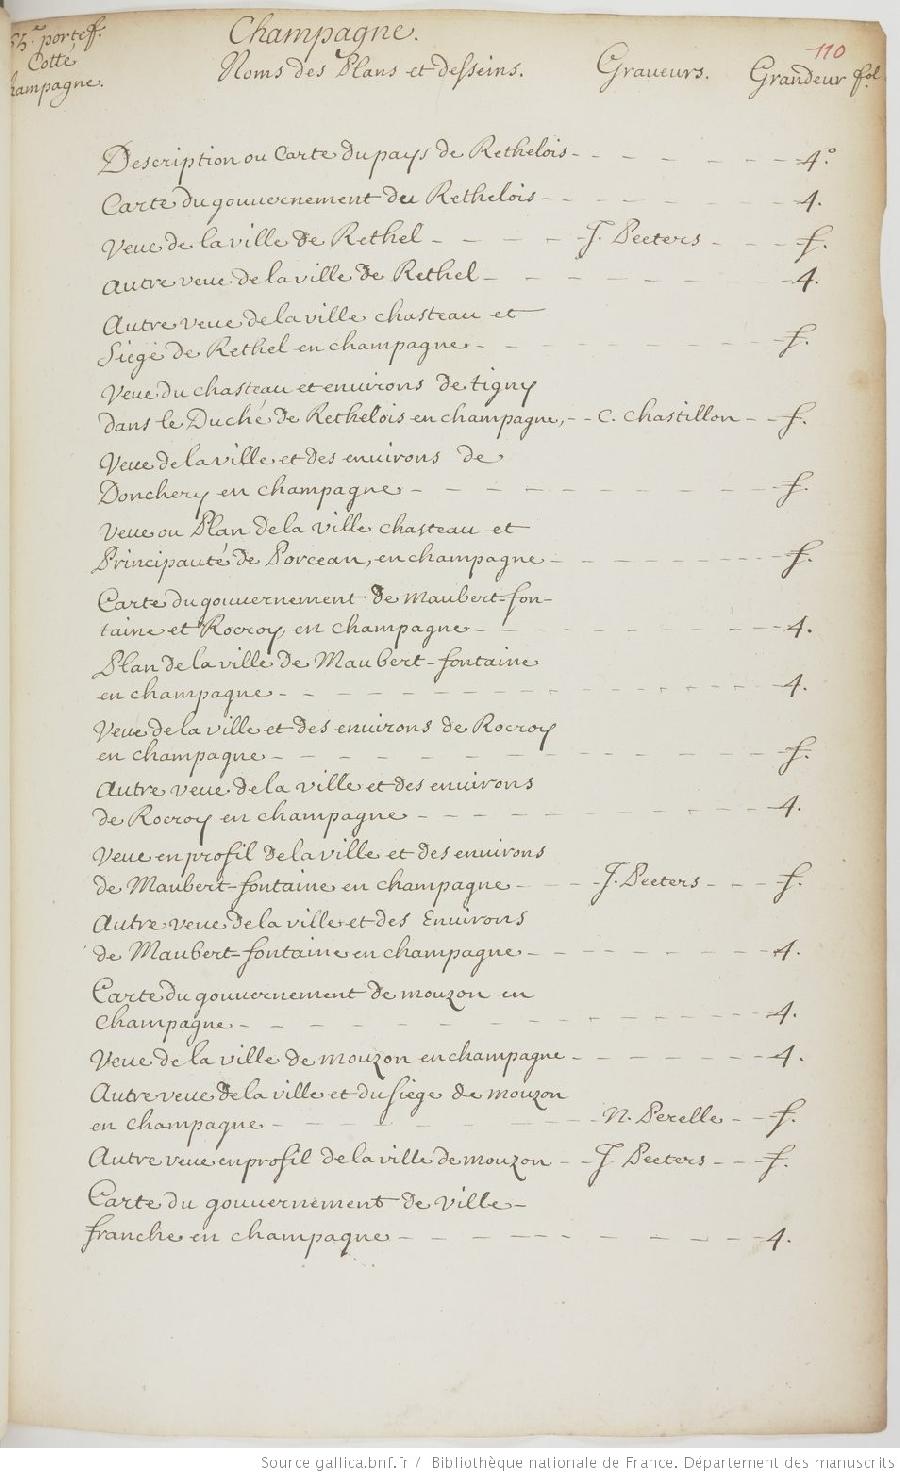 Champagne.
110
portef.
Cotté
hampagne.
Noms des Plans et desseins. Graveurs. Grandeur fol
Description ou Carte du pays de Rethelois - - - - - - 4°.
Carte du gouvernement de Rethelois - - - - - - 4.
Veue de la ville de Rethel - - - - J. Peeters - - - f.
Autre veue de la ville de Rethel - - - - - - - 4.
Autre veue de la ville chasteau et
Siege de Rethel en champagne - - - - - - - f.
Veue du chasteau et environs de tigny
dans le Duché de Rethelois en champagne, - - C. Chastillon - - f.
Veue de la ville et des environs de
Donchery en champagne - - - - - - - - f.
Veue ou Plan de la ville chasteau et
Principauté de Porcean, en champagne - - - - - - f.
Carte du gouvernement de Maubert-fon-
taine et Rocroy, en champagne - - - - - - 4.
Plan de la ville de Maubert-fontaine
en champagne - - - - - - - - - - 4.
Veue de la ville et des environs de Rocroy
en champagne - - - - - - - - - - f.
Autre veue de la ville et des environs
de Rocroy en champagne - - - - - - - - 4.
Veue en profil de la ville et des environs
de Maubert-fontaine en champagne - - - J. Peeters - - - f.
Autre veue de la ville et des Environs
de Maubert-fontaine en champagne - - - - - - - 4.
Carte du gouvernement de mouzon en
champagne - - - - - - - - - - - 4.
Veue de la ville de mouzon en champagne - - - - - - 4.
Autre veue de la ville et du siege de mouzon
en champagne - - - - - - - N. Perelle - - f.
Autre veue en profil de la ville de mouzon - - J Peeters - - - f.
Carte du gouvernement de ville-
franche en champagne - - - - - - - - - 4.
Source gallica.bnf.fr / Bibliothèque nationale de France. Département des manuscrits